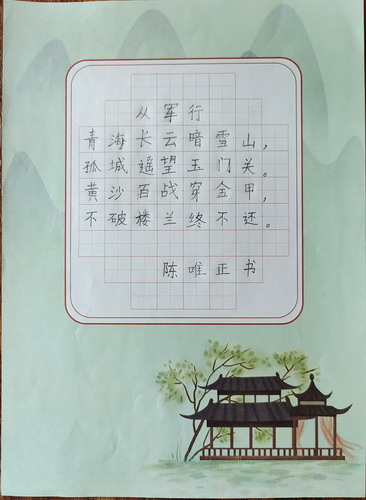 从军行
青海长云暗雪山，
孤城遥望玉门关。
黄沙百战穿金甲，
不破楼兰终不还。
陈唯正书